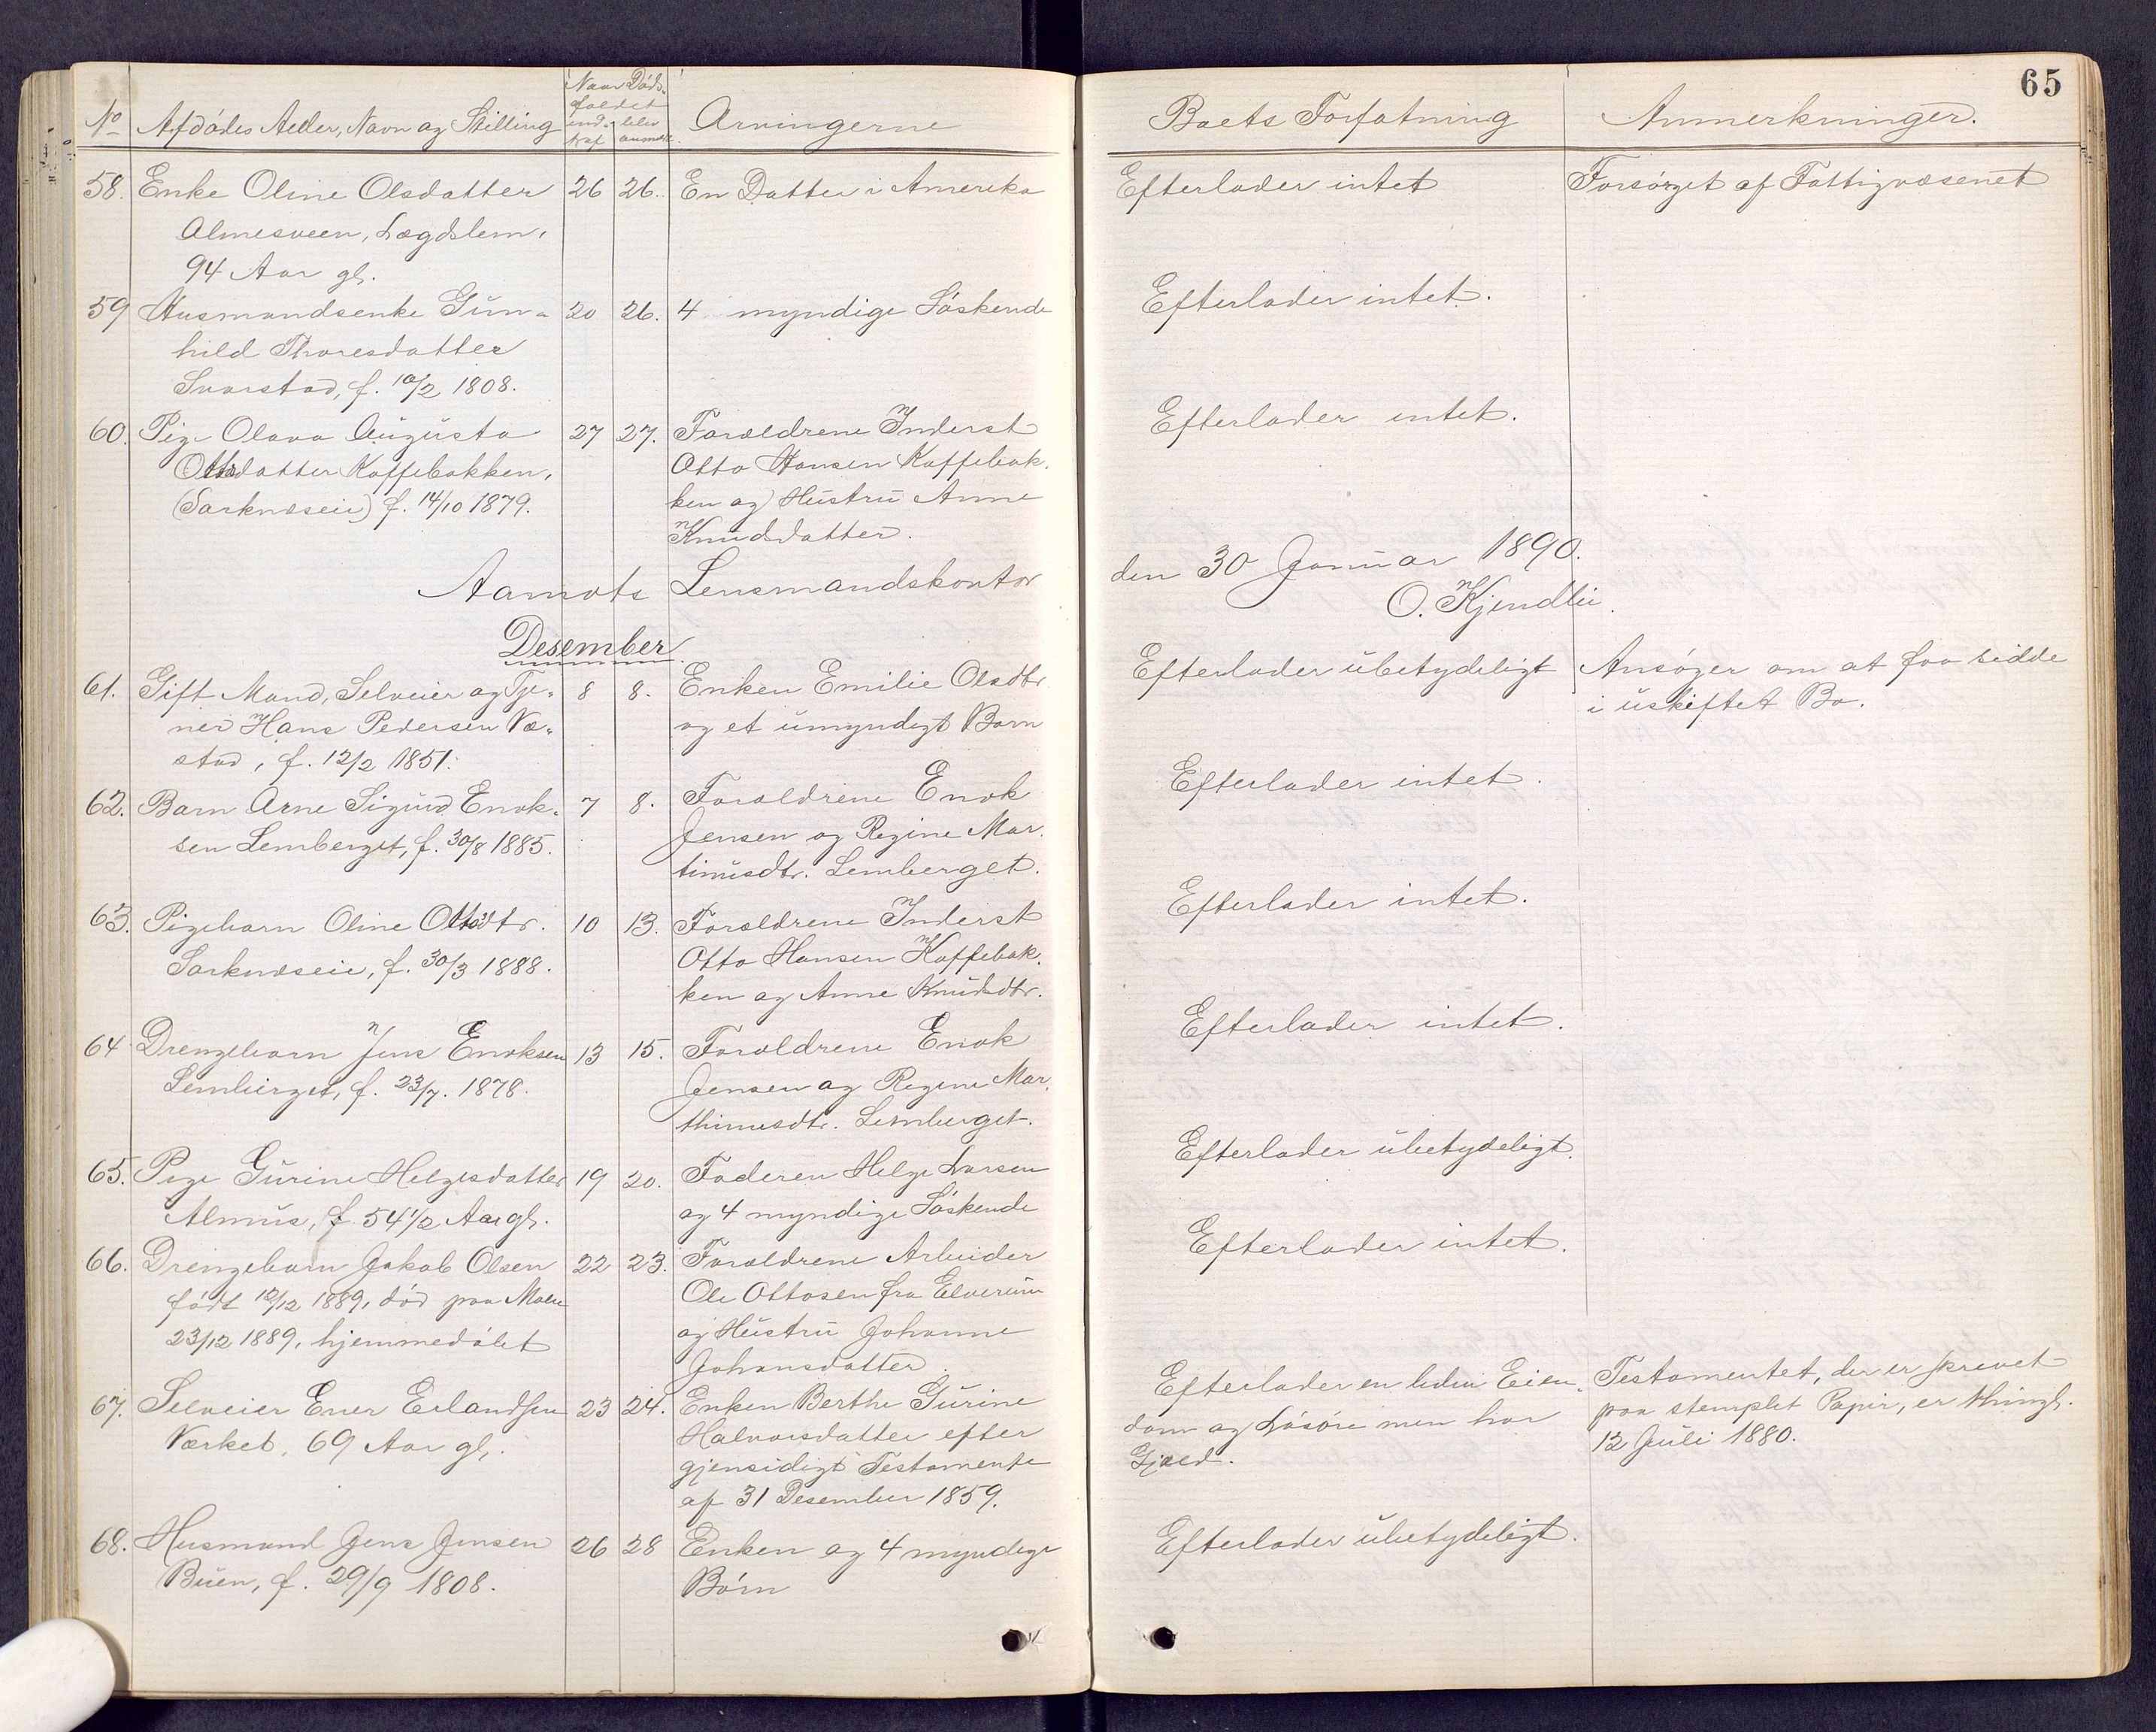 65
No Afdødes Alder, Navn og Stilling Naar Dødsfaldet indtraf blev anmeldt Arvingerne Boets Forfatning Anmerkninger.
58. Enke Oline Olsdatter 26 26. En Datter i Amerika Efterlader intet Forsørget af Fattigvæsenet
Almesveen, Lægdslem,
94 Aar gl.
59 Husmandsenke Gun- 20 26. 4 myndige Søskende Efterlader intet.
hild Thoresdatter
Svarstad, f. 10/2 1808.
60. Pige Olava Augusta 27 27. Forældrene Inderst Efterlader intet.
Ottosdatter Kaffebakken, Otto Hansen Kaffebak-
(Sorknæseie) f. 14/10 1879. ken og Hustru Anne
Knudsdatter.
Aamots Lensmandskontor den 30 Januar 1890.
O. Kjendlie.
Desember
61. Gift Mand, Selveier og Tje- 8 8. Enken Emilie Olsdtr Efterlader ubetydeligt Ansøger om at faa sidde
ner Hans Pedersen Næ- og et umyndigt Barn i uskiftet Bo.
stad, f. 12/2 1851.
62. Barn Arne Sigurd Enok- 7 8. Forældrene Enok Efterlader intet.
sen Lemberget, f. 30/8 1885. Jensen og Regine Mar-
tinusdtr. Lemberget.
63. Pigebarn Oline Ottosdtr. 10 13. Forældrene Inderst Efterlader intet.
Sorknæseie, f. 30/3 1888. Otto Hansen Kaffebak-
ken og Anne Knudsdtr.
64 Drengebarn Jens Enoksen 13 15. Forældrene Enok Efterlader intet.
Lemberget, f. 23/7. 1878. Jensen og Regine Mar-
thinusdtr. Lemberget.
65. Pige Gurine Helgesdatter 19 20. Faderen Helge Larsen Efterlader ubetydeligt.
Almus, f. 54 1/2 Aar gl. og 4 myndige Søskende
66. Drengebarn Jakob Olsen 22 23. Forældrene Arbeider Efterlader intet.
født 12/12 1889, død paa Moen Ole Ottosen fra Elverum
23/12 1889, hjemmedøbt og Hustru Johanne
Johansdatter.
67. Selveier Ener Erlandsen 23 24. Enken Berthe Gurine Efterlader en liden Eien- Testamentet, der er skrevet
Værket, 69 Aar gl. Halvorsdatter efter dom og Løsøre men har paa stemplet Papir, er thingl.
gjensidigt Testamente Gjæld. 12 Juli 1880.
af 31 Desember 1859.
68. Husmand Jens Jensen 26 28 Enken og 4 myndige Efterlader ubetydeligt.
Buen, f. 29/9 1808. Børn